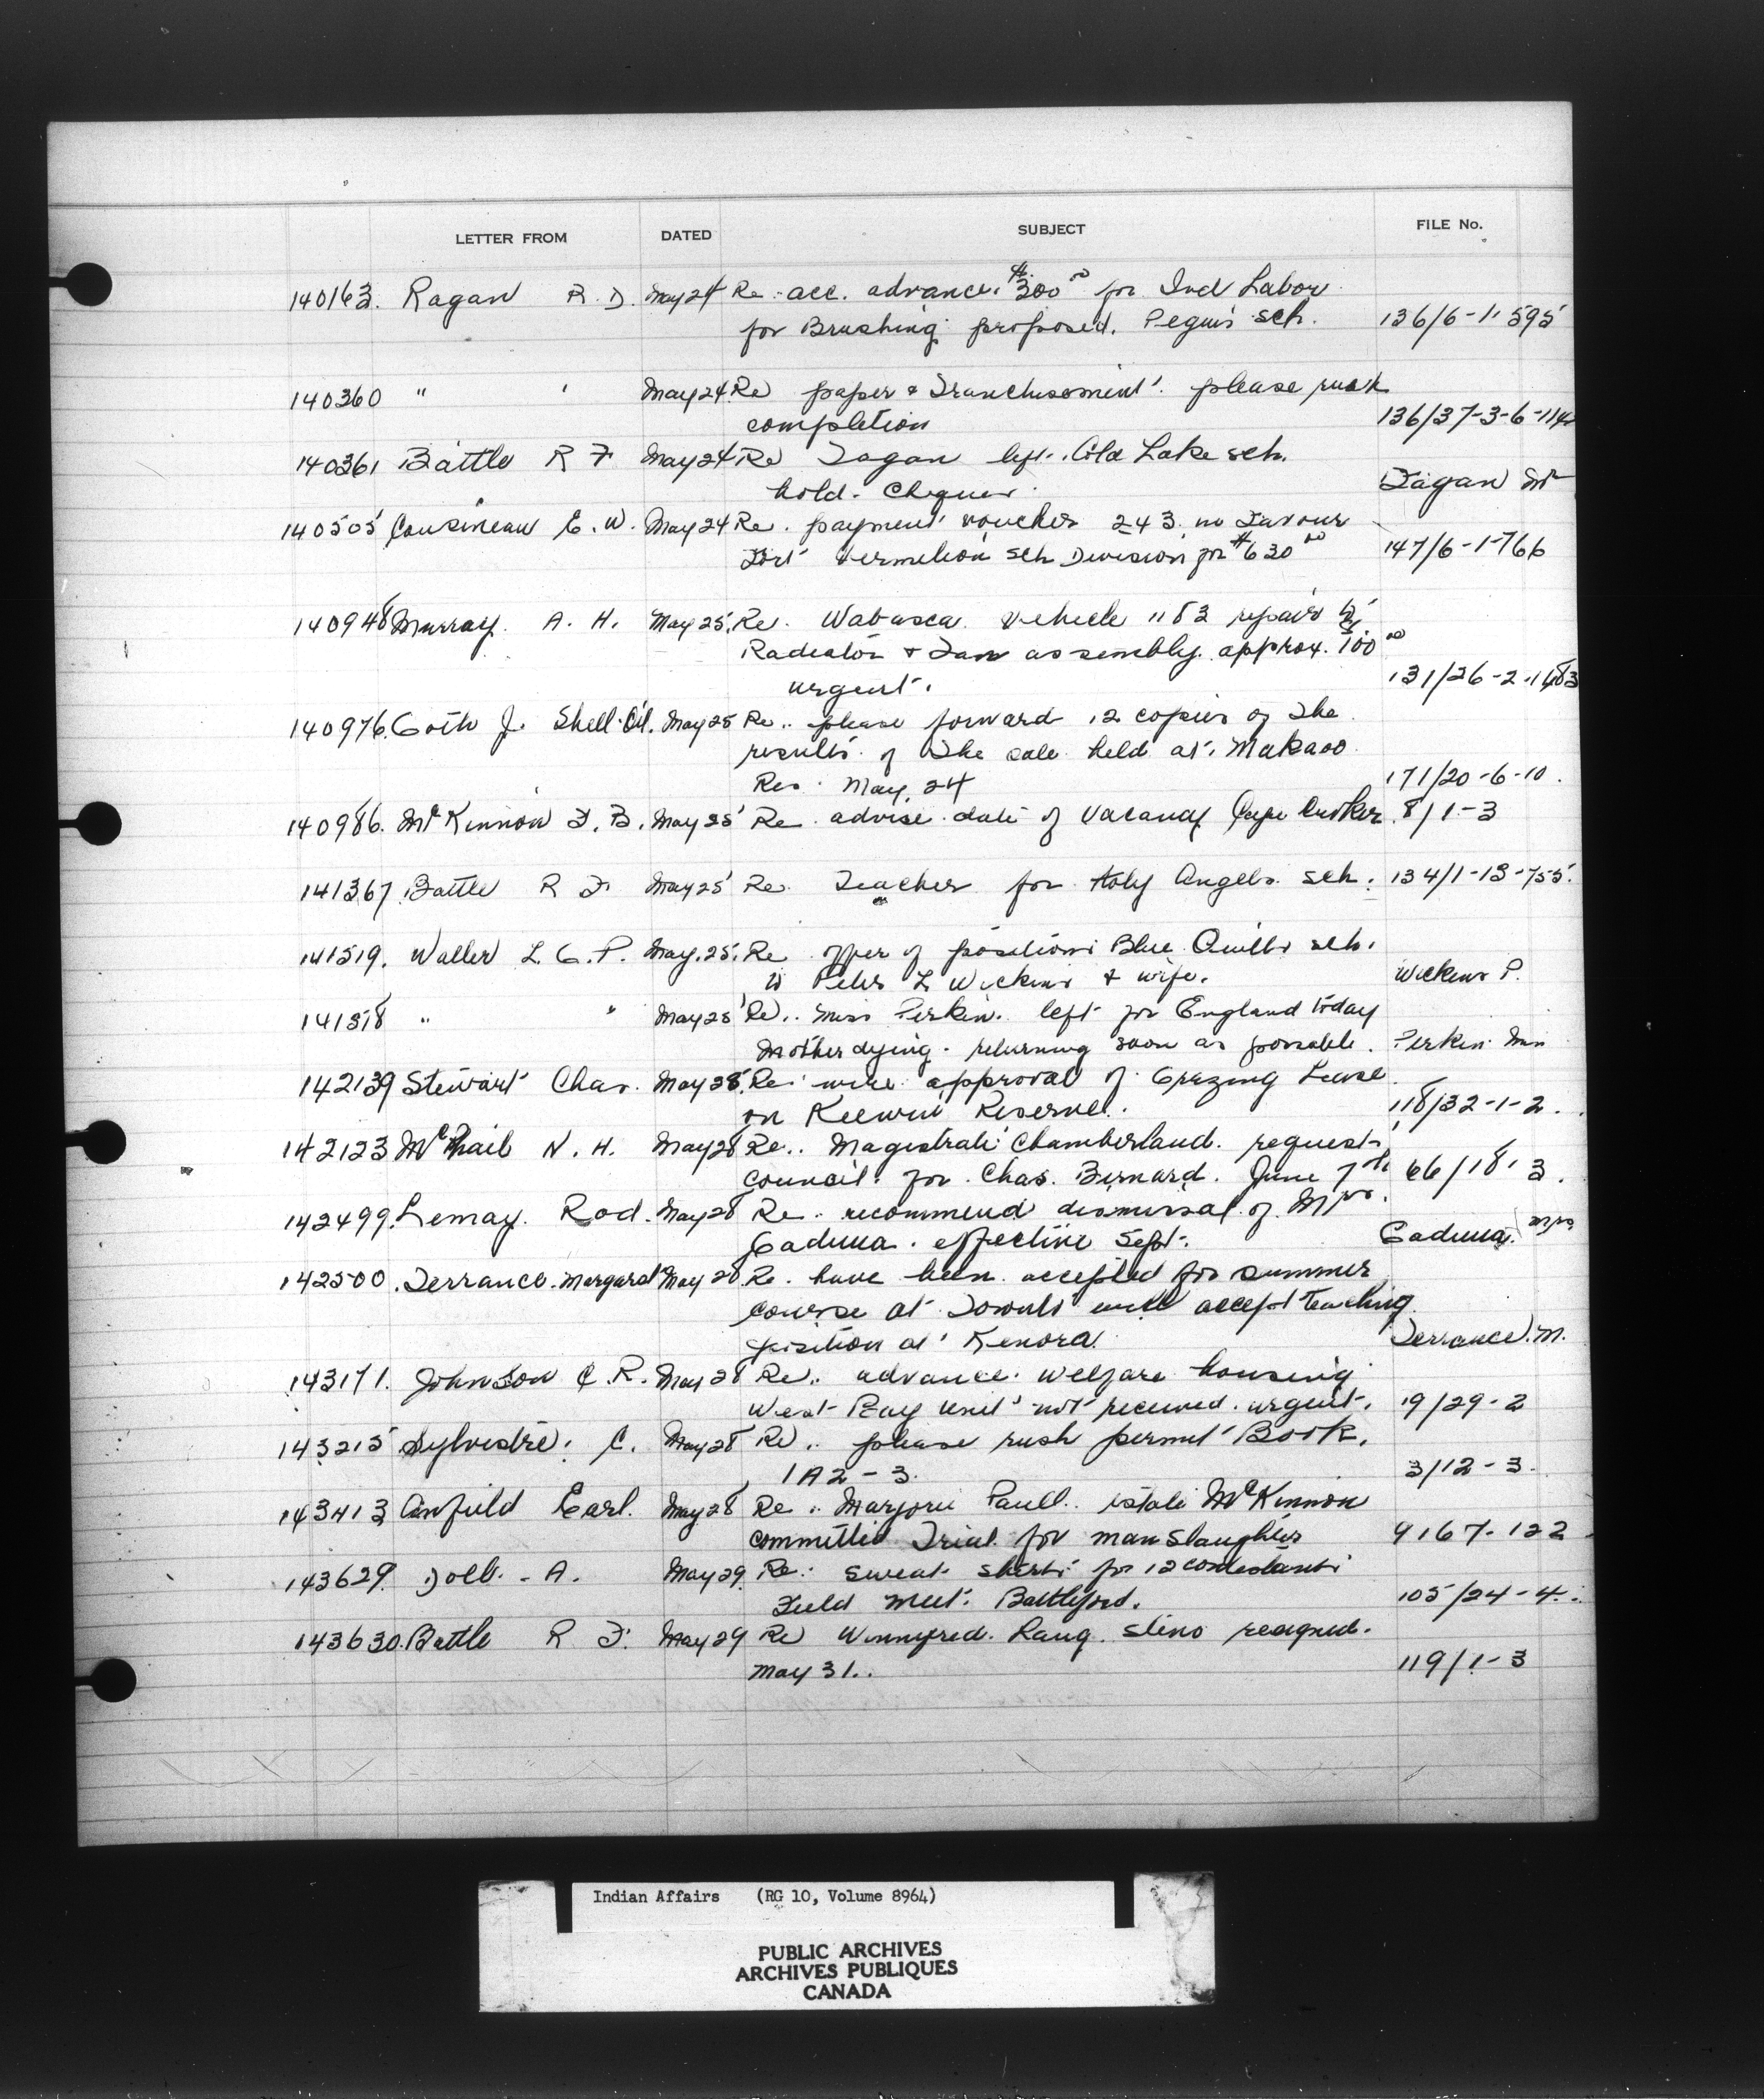 LETTER FROM DATED SUBJECT FILE No.
140163. Ragan R. D. May 24 Re. acc. advance. $300 00 for Ind Labor
for Brushing proposed. Peguis sch. 136/6-1-595
140360 " " May 24 Re paper & Franchisement. please rush
completion 136/37-3-6-114
140361 Battle R F May 24 Re Fagan left. Cold Lake sch.
hold. Cheques. Fagan
140505 Cousineau E. W. May 24 Re. payment voucher 243 in Favour
Fort Vermelion sch Division for $630 00 147/6-1-766
140948 Murray A. H. May 25. Re. Wabasca vehicle 1183 repairs to
Radiator & Fan assembly. approx. 100 00
urgent. 131/26-2-1183
140976. Goth J. Shell Oil. May 25 Re.. please forward 12 copies of The
results of The sale held at. Makaoo
Res. May. 24 171/20-6-10.
140986. McKinnon F. B. May 25 Re advise date of Vacancy Cape Croker. 8/1-3
141367 Battle R F May 25 Re. Teacher for Holy Angels sch. 134/1-13-755.
141519. Waller L. G. P. May. 25. Re offer of positions Blue Quills sch.
to Peter L Wickens & wife. Wickens P.
141518 " " May 25 Re.. Miss Perkin. left for England today
Mother dying. returning soon as possable. Perkin Miss
142139 Stewart Chas. May 28. Re: wire approval of Grazing Lease
on Keewin Reserve. 118/32-1-2.
142123 McPhail N. H. May 28 Re.. Magistrate Chamberland. request
council for Chas. Bernard. June 7th 66/18-3.
142499. Lemay. Rod. May 28 Re. recommend dismissal of Mrs.
Caduua. effective Sept. Caduua. Mrs
142500. Terrance. Margaret May 28 Re. have been accepted for summer
course at Toronto will accept teaching
position at Kenora. Terrance. M.
143171. Johnson C. R. May 28 Re.. advance. welfare housing
West Bay unit not received. urgent. 19/29-2
143215 Sylvestre. C. May 28 Re.. please rush permit Book.
1A2-3. 3/12-3.
143413 Canfield Earl. May 28 Re.. Marjorie Paull. estate McKinnon
committed Trial for manslaughter 9167-122
143629. Dolb. A. May 29. Re: Sweat shirts for 12 contestants
Field Meet. Battleford. 105/24-4.
143630. Battle R F. May 29 Re Winnyfred. Lang. steno resigned.
May 31.. 119/1-3
Indian Affairs (RG 10, Volume 8964)
PUBLIC ARCHIVES
ARCHIVES PUBLIQUES
CANADA